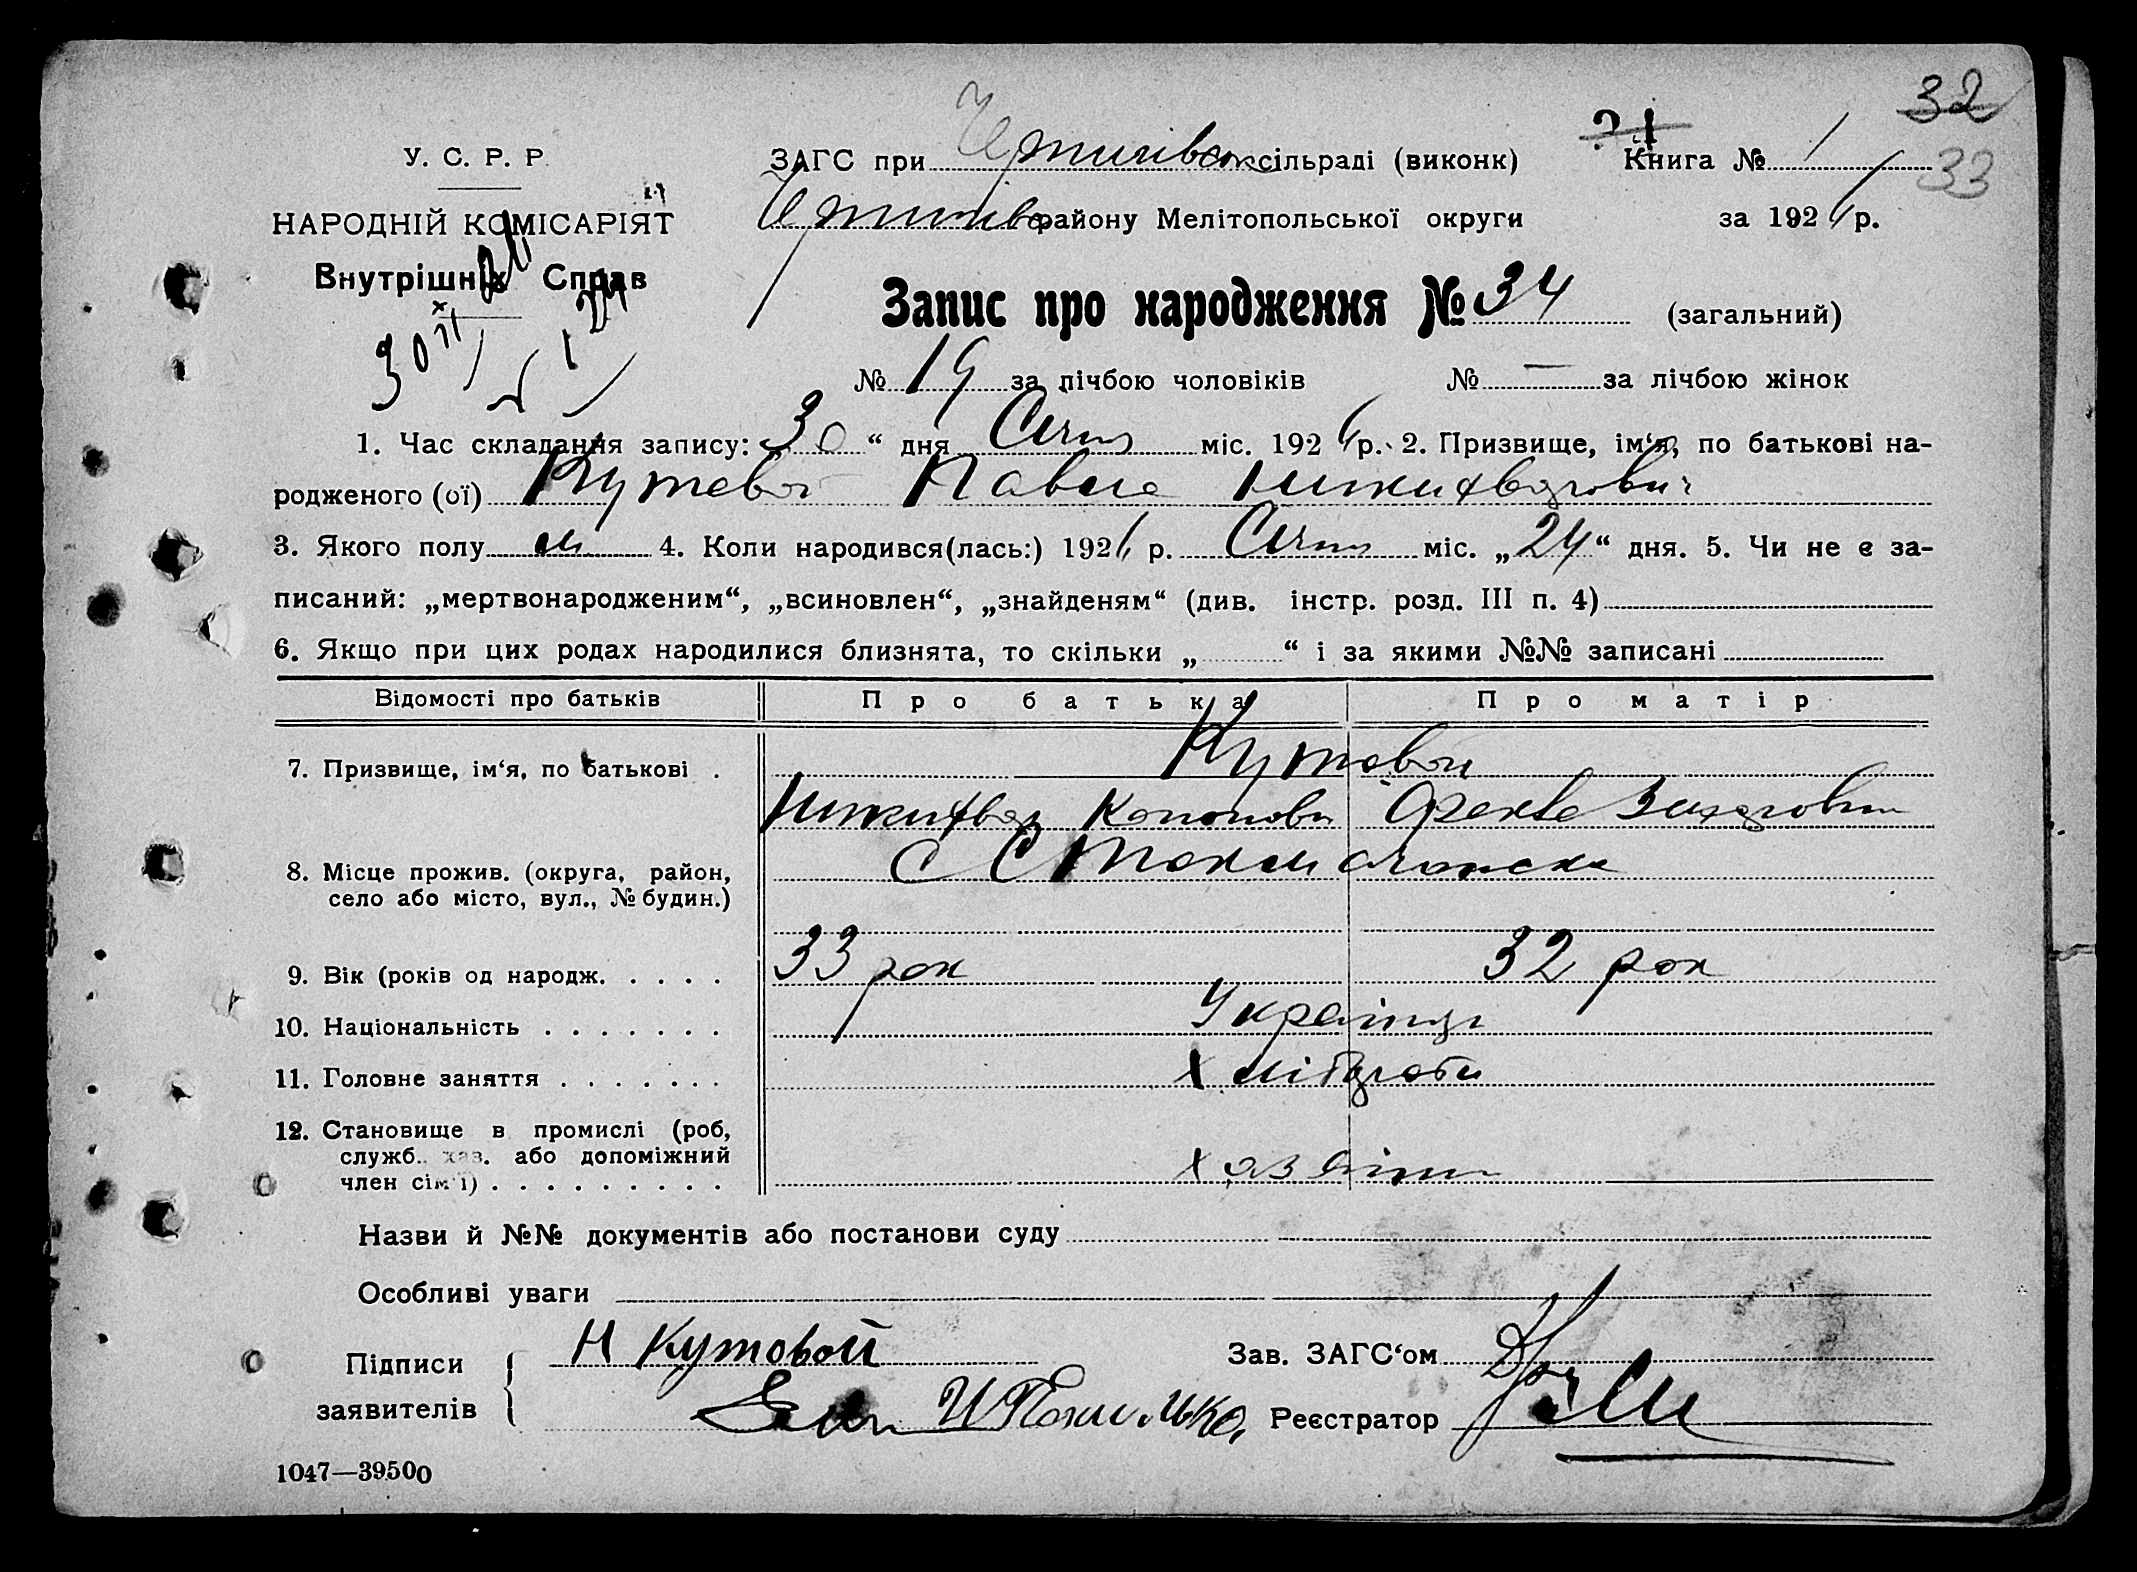 32
У. С. Р. Р.
ЗАГС при сільраді (виконк) Книга № 1
33
НАРОДНІЙ КОМІСАРІЯТ
району Мелітопольської округи за 192 р.
Внутрішніх Справ
Запис про народження № 34 (загальний)
№ 19 за лічбою чоловіків № — за лічбою жінок
1. Час складання запису: 30 “ дня Січня міс. 192 р. 2. Призвище, ім‘я, по батькові на-
родженого (ої) Кутовой Павло
3. Якого полу м 4. Коли народився(лась:) 192 р. Січня міс. „24“ дня. 5. Чи не є за-
писаний: „мертвонародженим“, „всиновлен“, „знайденям“ (див. інстр. розд. III п. 4)
6. Якщо при цих родах народилися близнята, то скільки „ “ і за якими №№ записані
Відомості про батьків Про батька Про матір
7. Призвище, ім‘я, по батькові . Кутовой
8. Місце прожив. (округа, район,
село або місто, вул., № будин.)
9. Вік (років од народж. . . . . 33 рок 32 рок
10. Національність . . . . . . . Українці
11. Головне заняття . . . . . . . Хлібороби
12. Становище в промислі (роб,
служб.. хаз. або допоміжний
член сім‘ї) . . . . . . . . . хазяїни
Назви й №№ документів або постанови суду
Особливі уваги
Підписи Н Кутовой Зав. ЗАГС‘ом
заявителів Реєстратор
1047—39500